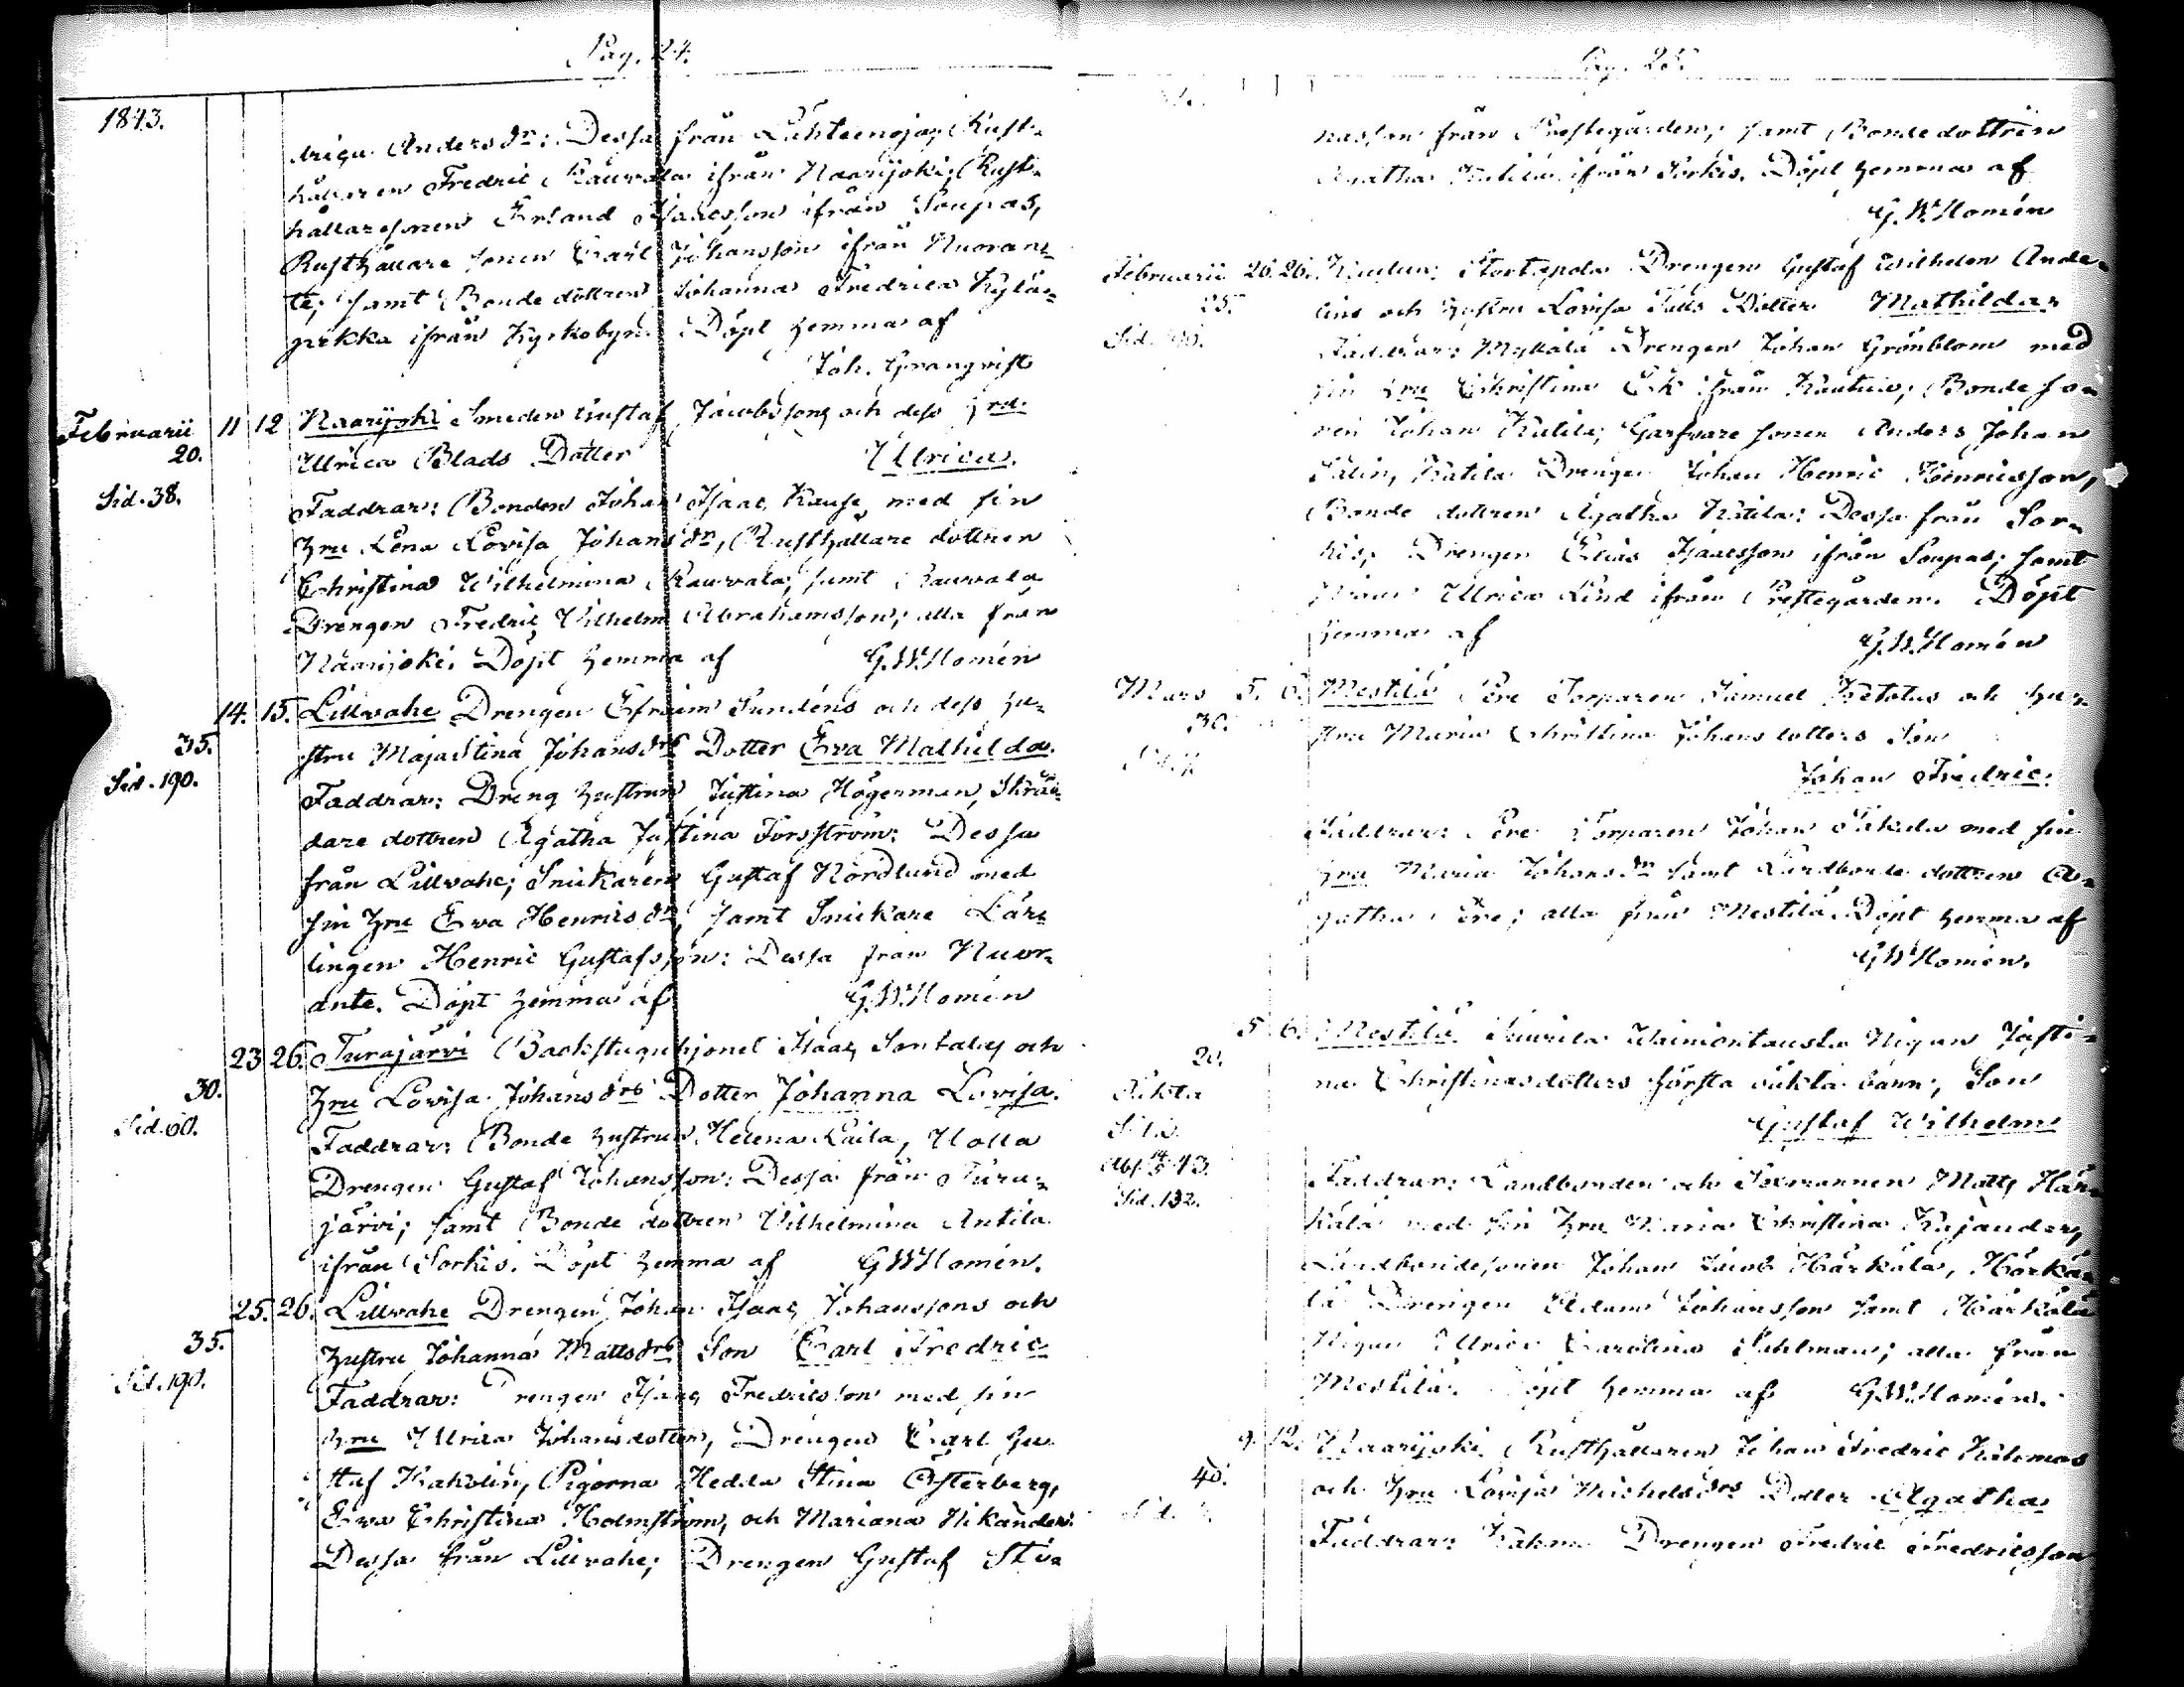 Pag. 24.
1843.
driga Andersdr: Dessa från Lähteenojay Rust-
hållaren Fredric Rauvala ifrån Naarijoki; Rust-
hållaresonen Erland Isaacsson ifrån Soupas,
Rusthållare sonen Carl Johansson ifrån Nuoran-
te; samt Bonde dottren Johanna Fredrica Kylän-
pekka ifrån Kyrkobyn. Döpt hemma af
Joh. Granqvist
Februarii 11 12 Naarijoki Smeden Gustaf Jacobssons och dess hru
20. Ullrica Blads Dotter Ullrica.
Sid. 38. Faddrar: Bonden Johan Isaac Kause, med sin
hru Lena Lovisa Johansdr, Rusthållare dottren
Christina Wilhelmina Rauvala; samt Rauvala
Drengen Fredric Vilhelm Abrahamsson; alla från
Naarijoki. Döpt hemma af G.W.Homén
14. 15. Lillvahe Drengen Efraim Sundéns och dess hu-
35. stru Maja Stina Johansdrs Dotter Eva Mathilda.
Sid. 190. Faddrar: Dreng hustrun Justina Högerman, Skräd-
dare dottren Agatha Justina Forsström: Dessa
från Lillvahe; Snickaren Gustaf Nordlund med
sin hru Eva Henricsdr, samt Snickare Lär-
lingen Henric Gustafsson: Dessa från Nuor-
ante. Döpt hemma af G.W.Homén
23 26. Turajärvi Backstuguhjonet Isaac Santalas och
30. hru Lovisa Johansdrs Dotter Johanna Lovisa.
Sid. 60. Faddrar: Bonde hustrun Helena Laila, Holla
Drengen Gustaf Johansson: Dessa från Tura-
järvi; samt Bonde dottren Vilhelmina Antila
ifrån Sorkis. Döpt hemma af G W Homén.
25. 26. Lillvahe Drengen Johan Isaac Johanssons och
35. hustru Johanna Mattsdrs Son Carl Fredric
Sid. 190. Faddrar: Drengen Isaac Fredricsson med sin
hru Ullrica Johansdotter, Drengen Carl Gu-
staf Kakolin, Pigorna Hedda Stina Österberg,
Eva Christina Holmström, och Mariana Nikander:
Dessa från Lillvahe; Drengen Gustaf
Pag. 25.
nasson från Prestegården; samt Bondedottren
Agatha Katila ifrån Sorkis. Döpt hemma af
G.W.Homén
Februarii 26. 26. Stortapola Drengen Gustaf Wilhelm Ande-
25. lins och hustru Lovisa Dotter Mathilda
Faddrar: Myllälä Drengen Johan Grönblom med
sin hru Christina Ek ifrån Bonde so-
nen Johan Katila; Garfvare sonen Anders Johan
Salin, Katila Drengen Johan Henric Henricsson,
Bonde dottren Agatha Katila: Dessa från Sor-
kis; Drengen Elias Isaacsson ifrån Soupas; samt
Ullrica Lind ifrån Prestegården. Döpt
hemma af G.W.Homén
Mars 5. 6. Mestilä Ere Torparen Samuel Ketolas och hu-
30. stru Maria Christina Johansdotters Son
Johan Fredric.
Faddrar: Ere Torparen Johan med sin
hru Maria Johansdr samt Landbonde dottren A-
gatha Ere; alla från Mestilä. Döpt hemma af
G W Homén.
5. 6. Mestilä Pigan Justi-
20. na Christinasdotters första oäkta barn, Son
Oäkta Gustaf Wilhelm
Sid. 132. Faddrar: Landbonden och Sexmannen Matts Här-
kälä med sin hru Maria Christina Kajander,
Landbondesonen Johan Jacob Härkälä, Härkä-
lä Drengen Adam Johansson samt Härkälä
Pigan Ullrica Carolina Sahlman; alla från
Mestilä. Döpt hemma af G.W.Homén.
9. 12. Naarijoki Rusthållaren Johan Fredric
40. och hru Lovisa Michelsdrs Dotter Agatha
Faddrar: Drengen Fredric Fredricsson